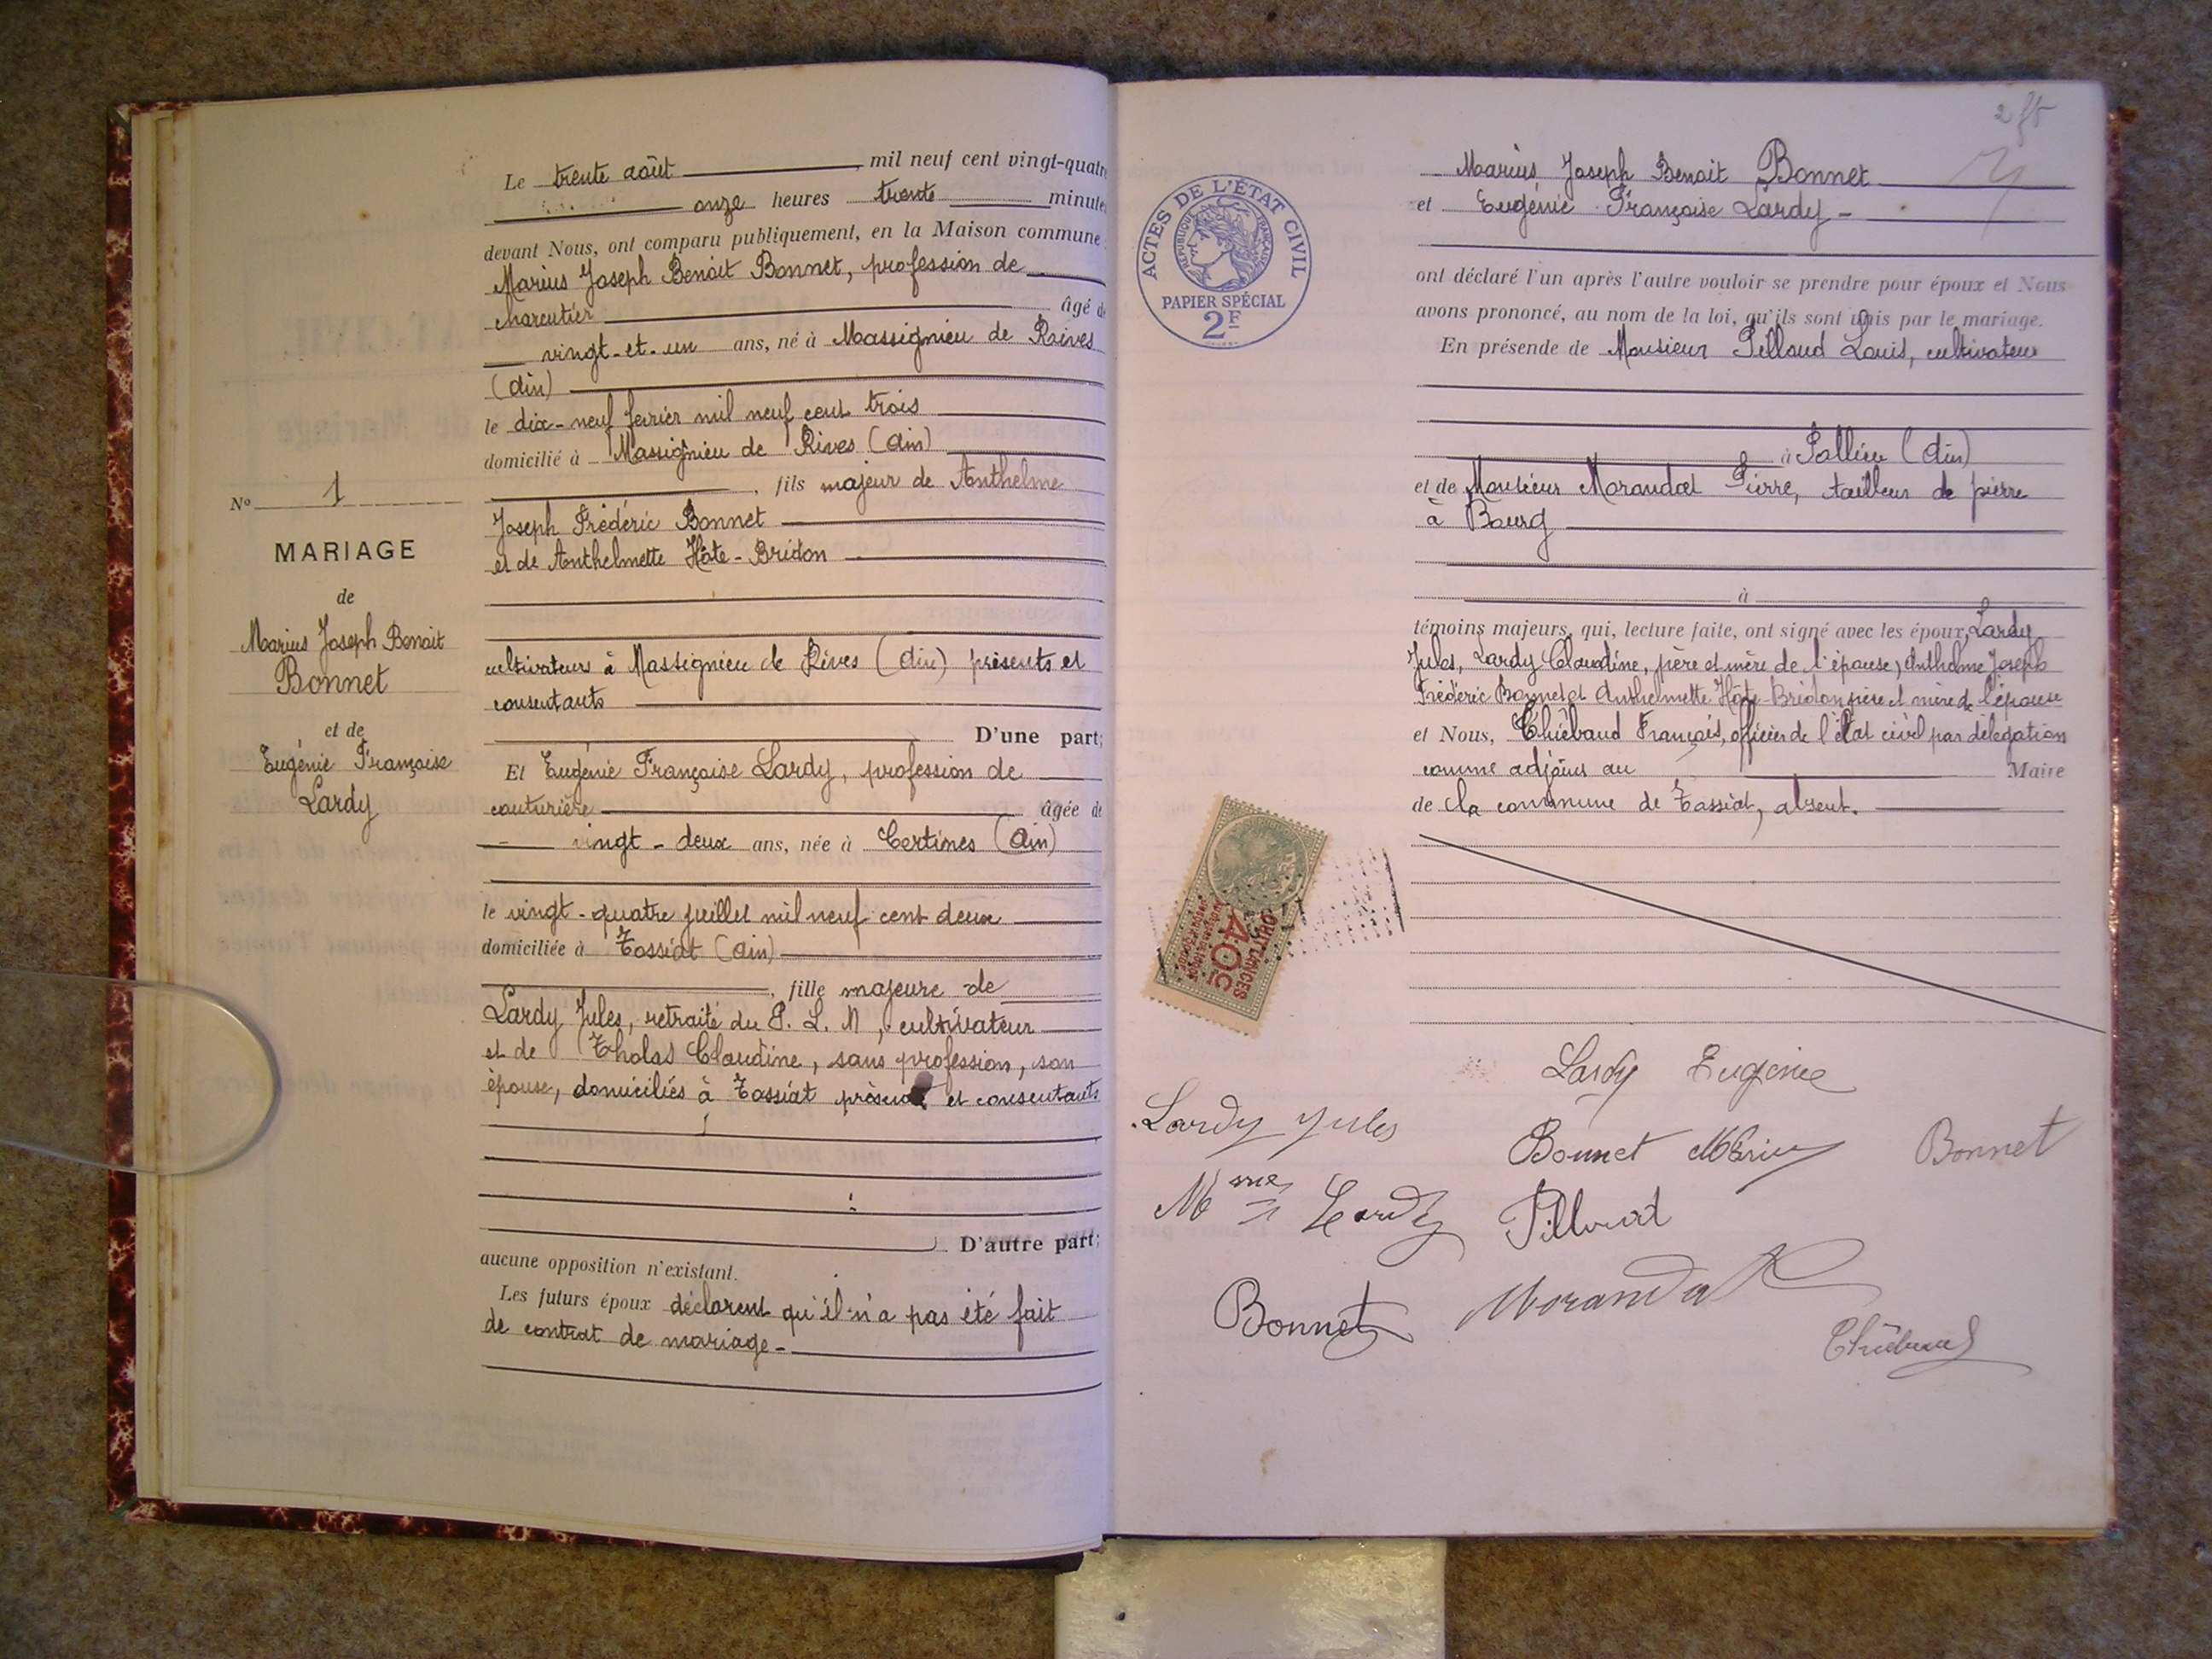 Le trente août, mil neuf cent vingt-quatre
onze heures trente minutes
devant Nous, ont comparu publiquement, en la Maison commune
Marius Joseph Benoit Bonnet, profession de
charcutier âgé de
vingt-et-un ans, né à Massignieu de Raives
(Ain)
le dix-neuf fevrier mil neuf cent trois
domicilié à Massignieu de Rives (Ain)
, fils majeur de Anthelme
Joseph Frédéric Bonnet
et de Anthelmette Hôte-Bridon
cultivateurs à Massignieu de Rives (Ain) présents et
consentants
D'une part;
Et Eugénie Françoise Lardy, profession de
couturière âgée de
vingt-deux ans, née à Certines (Ain)
le vingt-quatre juillet mil neuf cent deux
domiciliée à Tossiat (Ain)
, fille majeure de
Lardy Jules, retraité du P. L. M, cultivateur
et de Tholas Claudine, sans profession, son
épouse, domiciliés à Tossiat et consentants
D'autre part;
aucune opposition n'existant.
Les futurs époux déclarent qu'il n'a pas été fait
de contrat de mariage-
No 1
MARIAGE
de
Marius Joseph Benoit
Bonnet
et de
Eugénie Françoise
Lardy
ACTES DE L'ÉTAT CIVIL
RÉPUBLIQUE FRANÇAISE
PAPIER SPÉCIAL
2F
Marius Joseph Benoit Bonnet
et Eugénie Françoise Lardy-
ont déclaré l'un après l'autre vouloir se prendre pour époux et Nous
avons prononcé, au nom de la loi, qu'ils sont unis par le mariage.
En présende de Monsieur Pilloud Louis, cultivateur
à Pallieu (Ain)
et de Monsieur Morandat Pierre, tailleur de pierre
à Bourg
à
témoins majeurs, qui, lecture faite, ont signé avec les époux, Lardy
Jules, Lardy Claudine, père et mère de l'épouse, Anthelme Joseph
Frédéric Bonnet et Anthelmette Hôte-Bridon père et mère de l'épouse
et Nous, Thiébaud François, officier de l'état civil par délégation
comme adjoint au Maire
de la commune de Tossiat, absent.
QUITTANCES
40c
Lardy Eugénie
Lardy Jules
Bonnet Marius Bonnet
Mme Lardy Pilloud
Bonnet Morandat
Thiébaud